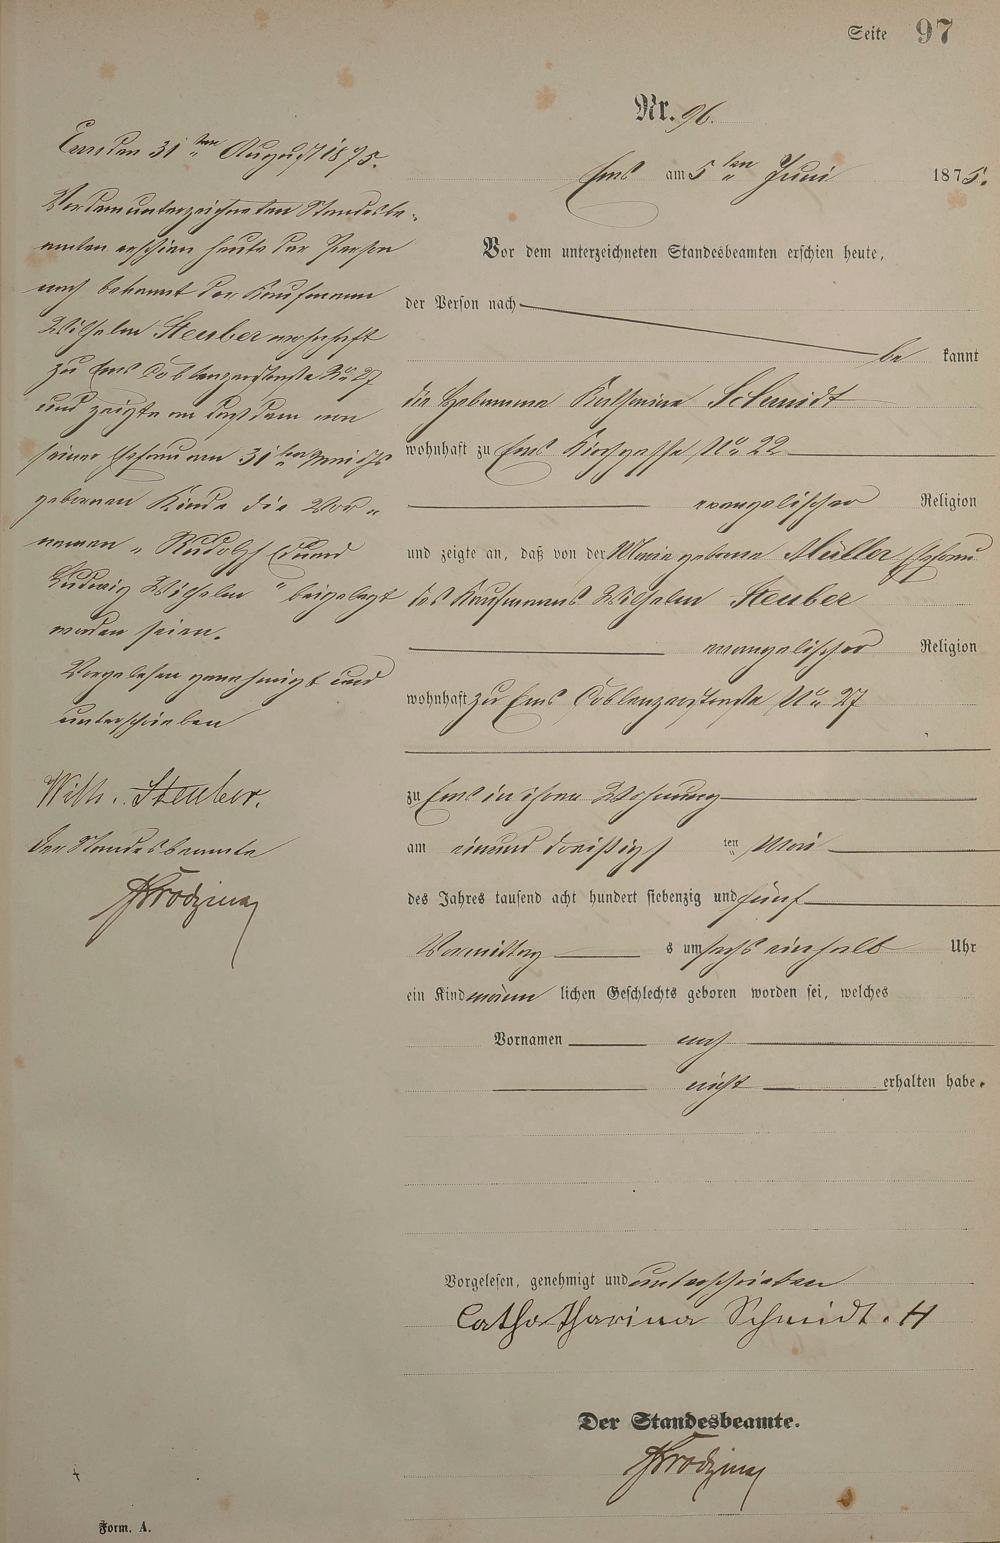 Seite 97
Nr. 96.
Ems am 5ten Juni 1875.
Vor dem unterzeichneten Standesbeamten erschien heute,
der Person nach
be kannt
die Hebamme Katharina Schmidt
wohnhaft zu Ems Kirchgasse No 22
evangelischer Religion
und zeigte an, daß von der Marie geborene Müller Ehefrau
des Kaufmanns Wilhelm Steuber
evangelischer Religion
wohnhaft zu Ems Coblenzerstraße No 27
zu Ems in ihrer Wohnung
am einund dreißigs ten Mai
des Jahres tausend acht hundert siebenzig und fünf
Vormittag s um sechs einhalb Uhr
ein Kind männ lichen Geschlechts geboren worden sei, welches
Vornamen noch
nicht erhalten habe.
Vorgelesen, genehmigt und unterschrieben
Catharina Schmidt. H
Der Standesbeamte.
Ems den 31ten August 1875.
Vor dem unterzeichneten Standesbe-
amten erschien heute der Person
nach bekannt der Kaufmann
Wilhelm Steuber wohnhaft
zu Ems Coblenzerstraße No 27
und zeigte an daß dem von
seiner Ehefrau am 31ten
gebornen Kinde die Vor-
namen "Rudolph Eduard
Ludwig Wilhelm" beigelegt
worden seien.
Vorgelesen genehmigt und
unterschrieben
Wilh. Steuber.
Der Standesbeamte
Form. A.